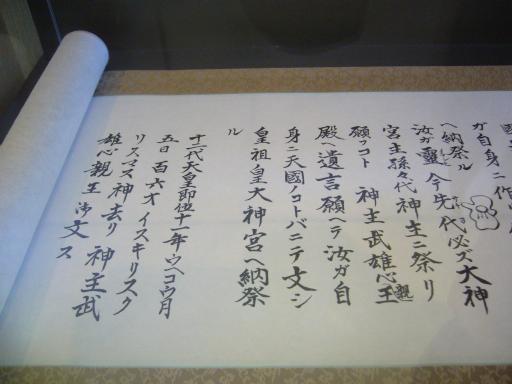 ガ自身ニ作
ヘ納祭ル
汝ガ靈 今ヨ 代必ズ大神
宮主孫々代 神主ニ祭リ
願フコト 神主武雄心親王
殿ヘ遺言願ヘテ汝ガ自
身ニ天國ノコトバニテ文シ
皇祖皇大神宮ヘ納祭
ル
十一代天皇即位十一年ウヘコウ月
五日 百六才 イスキリスク
リスマス神去リ 神主武
雄心親王 御文ス